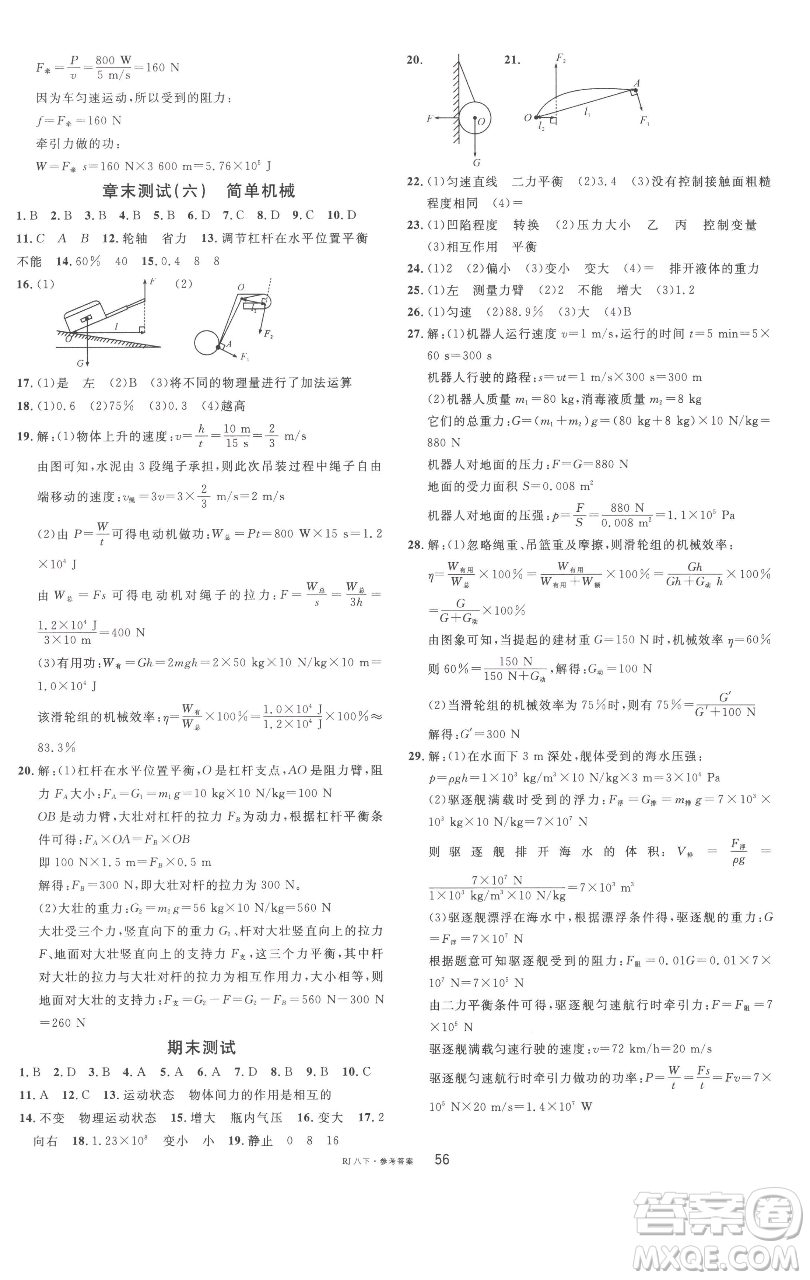 F牵=P/v=800 W/5 m/s=160 N
因为车匀速运动,所以受到的阻力:
f=F牵=160 N
牵引力做的功:
W=F牵 s=160 N×3 600 m=5.76×10⁵ J
章末测试(六) 简单机械
1.B 2.B 3.B 4.B 5.B 6.D 7.D 8.C 9.C 10.D
11.C A B 12.轮轴 省力 13.调节杠杆在水平位置平衡
不能 14.60% 40 15.0.4 8 8
16.(1) (2)
O
l
A
G
F₁
17.(1)是 左 (2)B (3)将不同的物理量进行了加法运算
18.(1)0.6 (2)75% (3)0.3 (4)越高
19.解:(1)物体上升的速度:v=h/t=10 m/15 s=2/3 m/s
由图可知,水泥由3段绳子承担,则此次吊装过程中绳子自由
端移动的速度:v绳=3v=3×2/3 m/s=2 m/s
(2)由P=W/t可得电动机做功:W总=Pt=800 W×15 s=1.2
×10⁴ J
由W总=Fs可得电动机对绳子的拉力:F=W总/s=W总/3h=
1.2×10⁴ J/3×10 m=400 N
(3)有用功:W有=Gh=2mgh=2×50 kg×10 N/kg×10 m=
1.0×10⁴ J
该滑轮组的机械效率:η=W有/W总×100%=1.0×10⁴ J/1.2×10⁴ J×100%≈
83.3%
20.解:(1)杠杆在水平位置平衡,O是杠杆支点,AO是阻力臂,阻
力F_A大小:F_A=G₁=m₁g=10 kg×10 N/kg=100 N
OB是动力臂,大壮对杠杆的拉力F_B为动力,根据杠杆平衡条
件可得:F_A×OA=F_B×OB
即100 N×1.5 m=F_B×0.5 m
解得:F_B=300 N
(2)大壮的重力:G₂=m₂g=56 kg×10 N/kg=560 N
大壮受三个力,竖直向下的重力G₂、杆对大壮竖直向上的拉力
F、地面对大壮竖直向上的支持力F支,这三个力平衡,其中杆
对大壮的拉力与大壮对杆的拉力为相互作用力,大小相等,则
地面对大壮的支持力:F支=G₂-F=G₂-F_B=560 N-300 N
=260 N
期末测试
1.B 2.D 3.B 4.A 5.A 6.D 7.C 8.B 9.C 10.C
11.A 12.C 13.运动状态 物体间力的作用是相互的
14.不变 物理运动状态 15.增大 瓶内气压 16.变大 17.2
向右 18.1.23×10⁸ 变小 小 19.静止 0 8 16
20. 21.
F
O
G
F₂
A
O
l₂
l₁
F₁
22.(1)匀速直线 二力平衡 (2)3.4 (3)没有控制接触面粗糙
程度相同 (4)=
23.(1)凹陷程度 转换 (2)压力大小 乙 丙 控制变量
(3)相互作用 平衡
24.(1)2 (2)偏小 (3)变小 变大 (4)= 排开液体的重力
25.(1)左 测量力臂 (2)不能 增大 (3)1.2
26.(1)匀速 (2)88.9% (3)变大 (4)B
27.解:(1)机器人运行速度v=1 m/s,运行的时间t=5 min=5×
60 s=300 s
机器人行驶的路程:s=vt=1 m/s×300 s=300 m
(2)机器人质量m₁=80 kg,消毒液质量m₂=8 kg
它们的总重力:G=(m₁+m₂)g=(80 kg+8 kg)×10 N/kg=
880 N
机器人对地面的压力:F=G=880 N
地面的受力面积S=0.008 m²
机器人对地面的压强:p=F/S=880 N/0.008 m²=1.1×10⁵ Pa
28.解:(1)忽略绳重、吊篮重及摩擦,则滑轮组的机械效率:
η=W有用/W总×100%=W有用/W有用+W额×100%=Gh/Gh+G动 h×100%
=G/G+G动×100%
由图象可知,提升的建材重G=150 N时,机械效率η=60%
则60%=150 N/150 N+G动,解得:G动=100 N
(2)当滑轮组的机械效率为75%时,则有75%=G′/G′+100 N
解得:G′=300 N
29.解:(1)在水面下3 m深处,舰体受到的海水压强:
p=ρgh=1×10³ kg/m³×10 N/kg×3 m=3×10⁴ Pa
(2)驱逐舰满载时受到的浮力:F浮=G排=m排g=7×10⁶ kg
×10 N/kg=7×10⁷ N
则驱逐舰排开海水的体积:V排=F浮/ρg=
7×10⁷ N/1×10³ kg/m³×10 N/kg=7×10³ m³
(3)驱逐舰漂浮在海水中,根据漂浮条件得,驱逐舰的重力:G
=F浮=7×10⁷ N
根据题意可知受到的阻力:F阻=0.01G=0.01×7×10⁷ N=
7×10⁵ N
由二力平衡条件可得,驱逐舰匀速航行时牵引力:F=F阻=7
×10⁵ N
驱逐舰满载匀速行驶的速度:v=72 km/h=20 m/s
驱逐舰匀速航行时牵引力做功的功率:P=W/t=Fs/t=Fv=7×
10⁵ N×20 m/s=1.4×10⁷ W
RJ八下·参考答案 56
答案圈
MXQE.COM